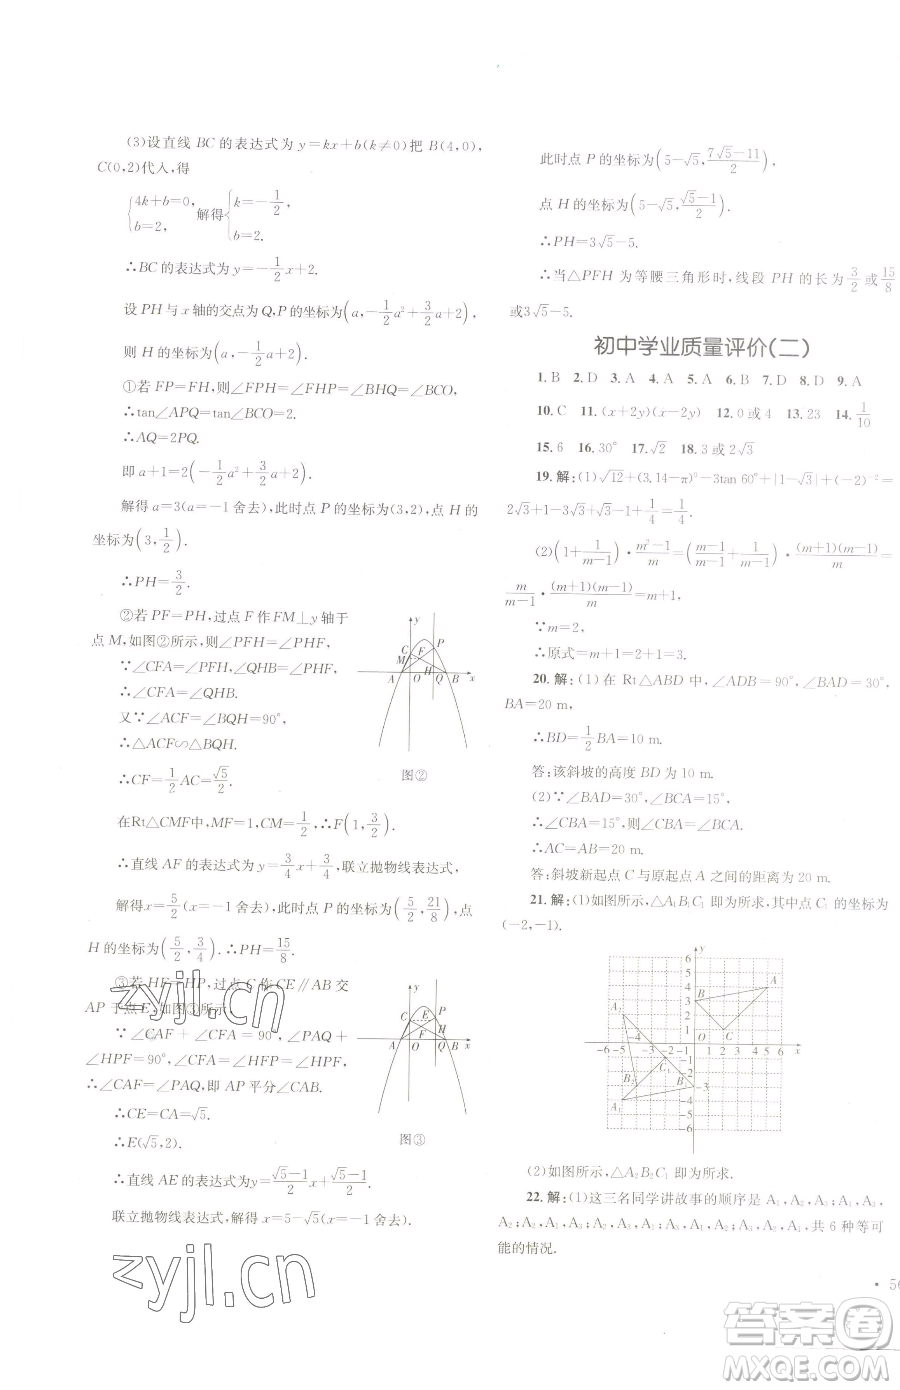 (3)设直线 BC 的表达式为 y=kx+b(k≠0)把 B(4,0),
C(0,2)代入,得
{4k+b=0, b=2, 解得{k=-1/2, b=2.
∴BC 的表达式为 y=-1/2x+2.
设 PH 与 x 轴的交点为 Q,P 的坐标为(a,-1/2a²+3/2a+2),
则 H 的坐标为(a,-1/2a+2).
①若 FP=FH,则∠FPH=∠FHP=∠BHQ=∠BCO.
∴tan∠APQ=tan∠BCO=2.
∴AQ=2PQ.
即 a+1=2(-1/2a²+3/2a+2).
解得 a=3(a=-1舍去),此时点 P 的坐标为(3,2),点 H 的
坐标为(3,1/2).
∴PH=3/2.
②若 PF=PH,过点 F 作 FM⊥y 轴于
点 M,如图②所示,则∠PFH=∠PHF.
∵∠CFA=∠PFH,∠QHB=∠PHF,
∴∠CFA=∠QHB.
又∵∠ACF=∠BQH=90°,
∴△ACF∽△BQH.
∴CF=1/2AC=√5/2.
在Rt△CMF中,MF=1,CM=1/2,∴F(1,3/2).
∴直线 AF 的表达式为 y=3/4x+3/4,联立抛物线表达式,
解得x=5/2(x=-1舍去),此时点 P 的坐标为(5/2,21/8),点
H 的坐标为(5/2,3/4).∴PH=15/8.
y C F P M H A O Q B x
图②
③若 HF=HP,过点 C 作 CE∥AB 交
AP 于点 E,如图③所示,
∵∠CAF+∠CFA=90°,∠PAQ+
∠HPF=90°,∠CFA=∠HFP=∠HPF,
∴∠CAF=∠PAQ,即 AP 平分∠CAB.
∴CE=CA=√5.
∴E(√5,2).
y C E P F H A O Q B x
图③
∴直线 AE 的表达式为y=√5-1/2x+√5-1/2.
联立抛物线表达式,解得 x=5-√5(x=-1舍去).
此时点 P 的坐标为(5-√5,7√5-11/2),
点 H 的坐标为(5-√5,√5-1/2).
∴PH=3√5-5.
∴当△PFH 为等腰三角形时,线段 PH 的长为3/2或15/8
或3√5-5.
初中学业质量评价(二)
1.B 2.D 3.A 4.A 5.A 6.B 7.D 8.D 9.A
10.C 11.(x+2y)(x-2y) 12.0 或 4 13.23 14.1/10
15.6 16.30° 17.√2 18.3 或 2√3
19.解:(1)√12+(3.14-π)⁰-3tan 60°+|1-√3|+(-2)⁻²=
2√3+1-3√3+√3-1+1/4=1/4.
(2)(1+1/m-1)·m²-1/m=(m-1/m-1+1/m-1)·(m+1)(m-1)/m=
m/m-1·(m+1)(m-1)/m=m+1,
∵m=2,
∴原式=m+1=2+1=3.
20.解:(1)在 Rt△ABD 中,∠ADB=90°,∠BAD=30°,
BA=20 m,
∴BD=1/2BA=10 m.
答:该斜坡的高度 BD 为 10 m.
(2)∵∠BAD=30°,∠BCA=15°,
∴∠CBA=15°,则∠CBA=∠BCA.
∴AC=AB=20 m.
答:斜坡新起点 C 与原起点 A 之间的距离为 20 m.
21.解:(1)如图所示,△A₁B₁C₁ 即为所求,其中点 C₁ 的坐标为
(-2,-1).
(2)如图所示,△A₂B₂C₁ 即为所求.
22.解:(1)这三名同学讲故事的顺序是 A₁,A₂,A₃;A₁,A₃,
A₂;A₂,A₁,A₃;A₂,A₃,A₁;A₃,A₁,A₂;A₃,A₂,A₁,共 6 种等可
能的情况.
zyjl.cn
zyjl.cn
答案圈
MXQE.COM